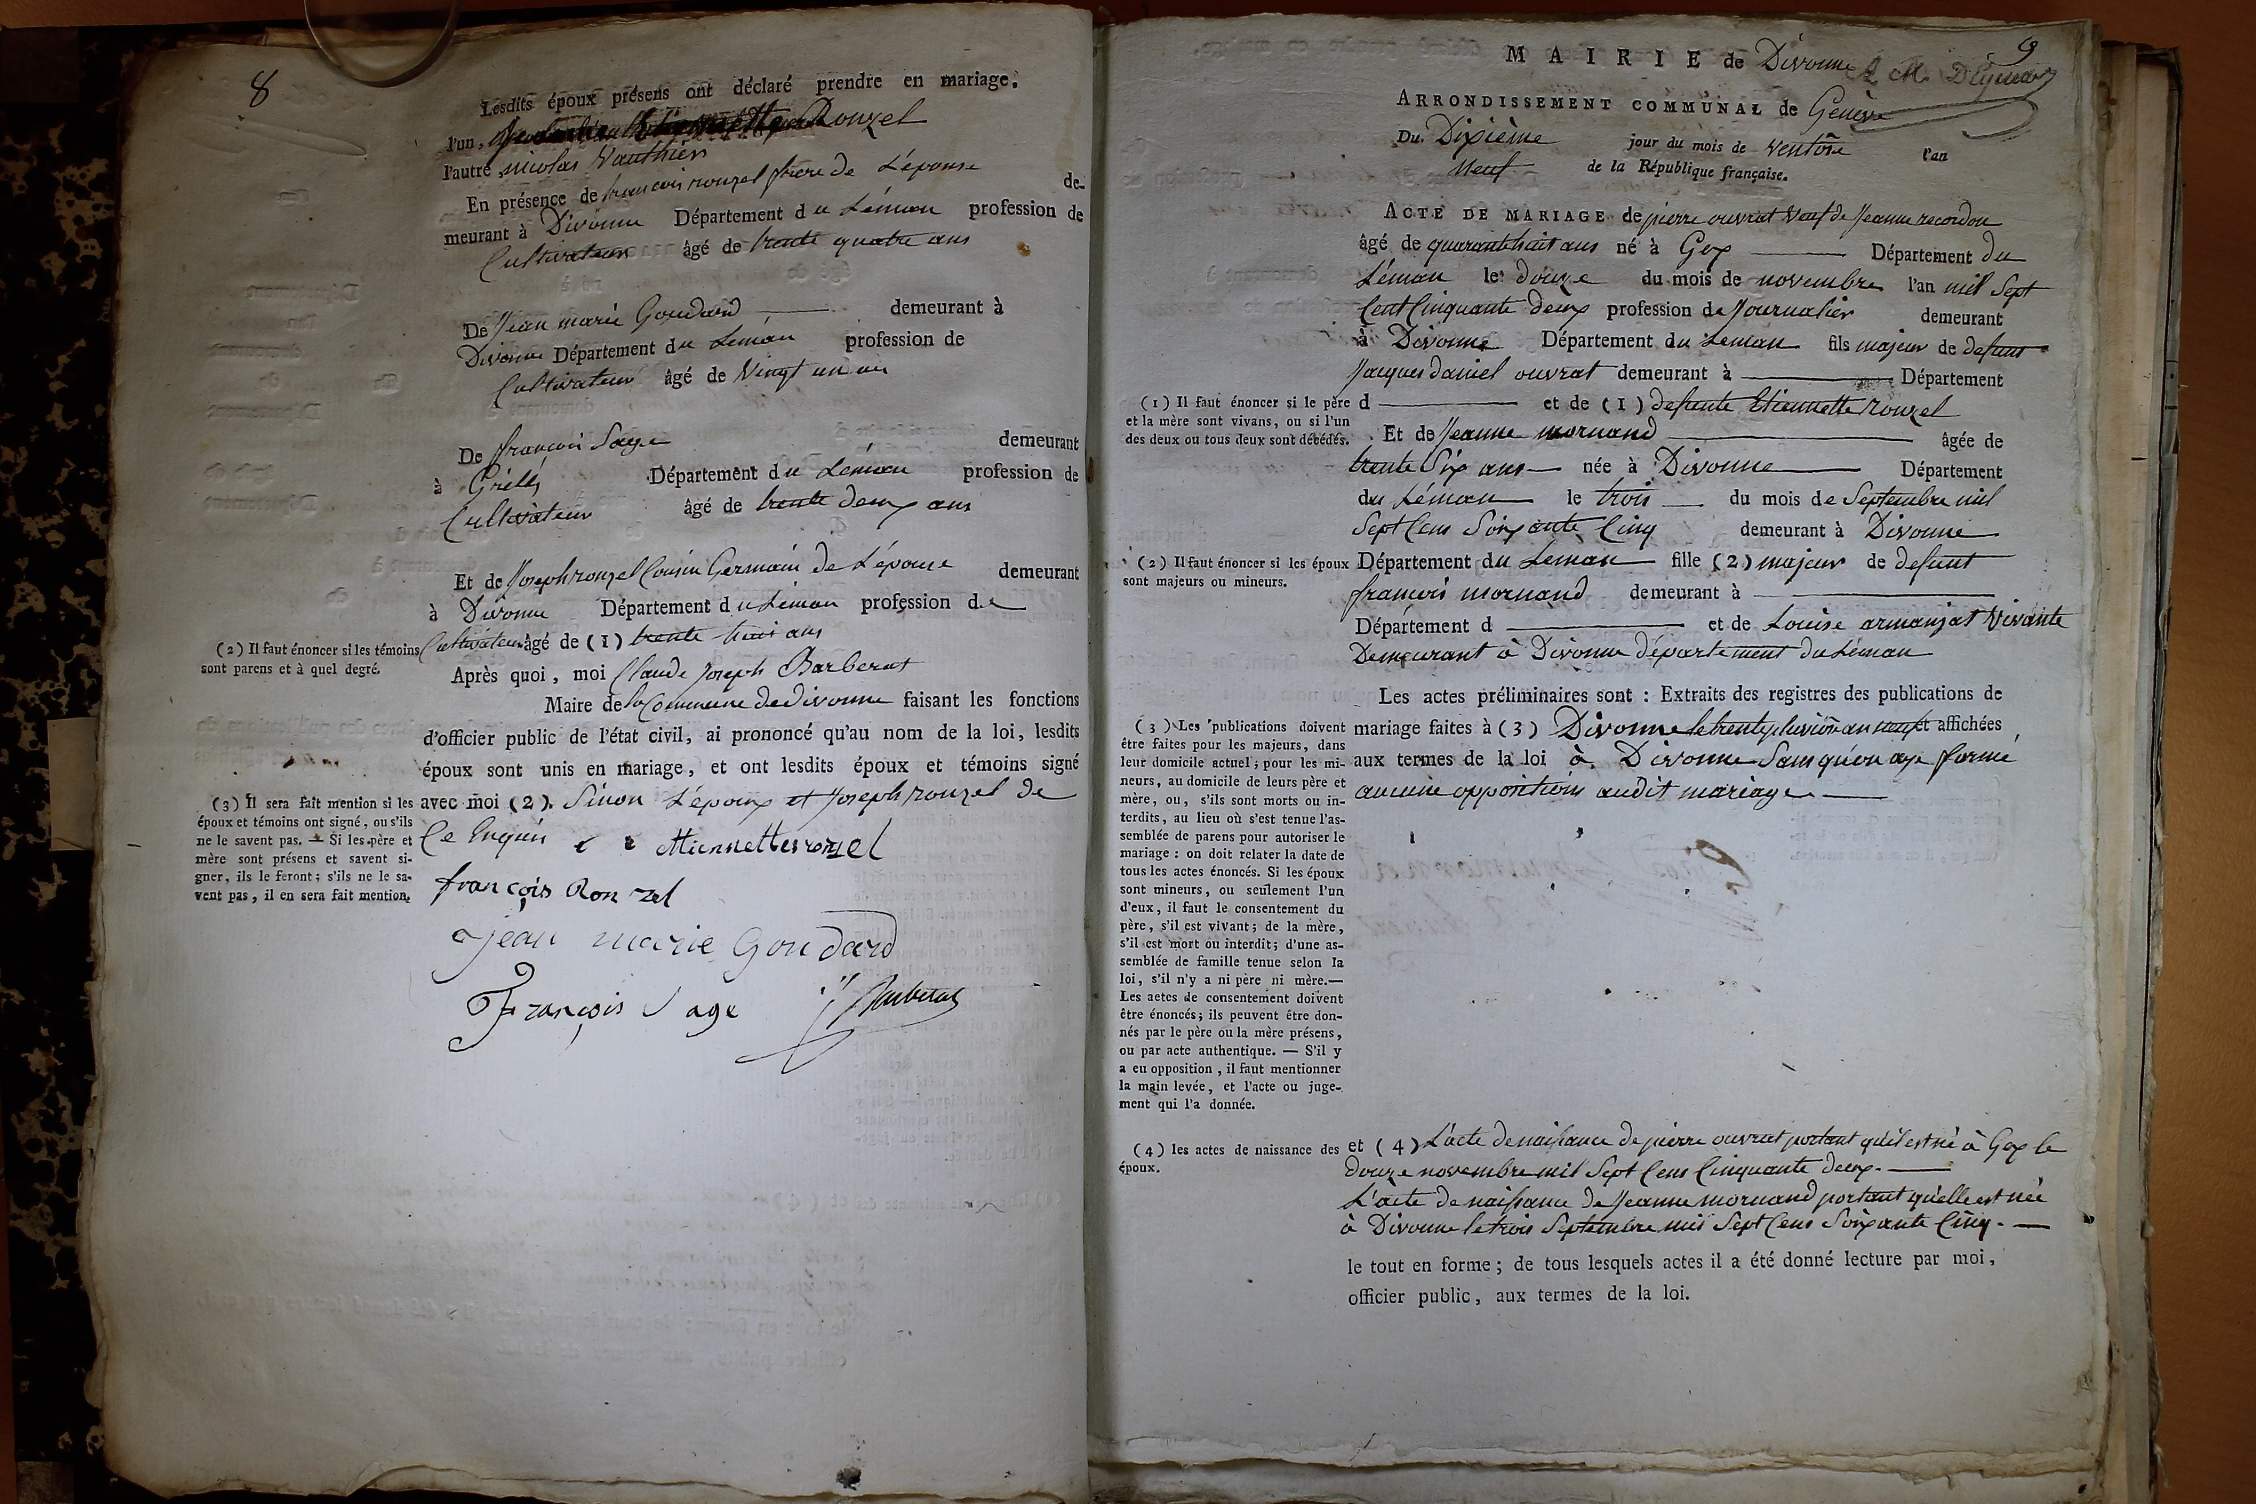 8
Lesdits époux présens ont déclaré prendre en mariage.
l'un, Etiennette Ronzel
l'autre nicolas Vauthier
En présence de françois ronzel frere de L'épouse de-
meurant à Divonne Département du Léman profession de
Cultivateur âgé de trente quatre ans
De Jean marie Goudard demeurant à
Divonne Département du Léman profession de
Cultivateur âgé de Vingt un an
De françois Sage demeurant
à Grilly Département du Léman profession de
Cultivateur âgé de trente deux ans
Et de Joseph ronzel Cousin Germain de L'épouse demeurant
à Divonne Département du Léman profession de
Cultivateur âgé de (1) trente huit ans
(2) Il faut énoncer si les témoins
sont parens et à quel degré.
Après quoi, moi Claude Joseph Barberat
Maire de la Commune de divonne faisant les fonctions
d'officier public de l'état civil, ai prononcé qu'au nom de la loi, lesdits
époux sont unis en mariage, et ont lesdits époux et témoins signé
avec moi (2). Sinon L'époux et Joseph ronzel de
Ce Enquis
(3) Il sera fait mention si les
époux et témoins ont signé, ou s'ils
ne le savent pas. — Si les père et
mère sont présens et savent si-
gner, ils le feront; s'ils ne le sa-
vent pas, il en sera fait mention.
ettiennette ronzel
françois Ronzel
jean marie Goudard
François Sage Barberat
9
MAIRIE de Divonne
ARRONDISSEMENT COMMUNAL de Genève
Du Dixième jour du mois de Ventôse l'an
Neuf de la République française.
ACTE DE MARIAGE de pierre ouvrat Veuf de Jeanne recordon
âgé de quarante huit ans né à Gex Département du
Léman le douze du mois de novembre l'an mil Sept
Cent Cinquante deux profession de Journalier demeurant
à Divonne Département du Leman fils majeur de defunt
Jacques daniel ouvrat demeurant à Département
d et de (1) defunte Etiennette ronzel
(1) Il faut énoncer si le père
et la mère sont vivans, ou si l'un
des deux ou tous deux sont décédés.
Et de Jeanne mornand âgée de
trente Six ans née à Divonne Département
du Léman le trois du mois de Septembre mil
Sept Cens Soixante Cinq demeurant à Divonne
Département du Leman fille (2) majeur de defunt
(2) Il faut énoncer si les époux
sont majeurs ou mineurs.
francois mornand demeurant à
Département d et de Louise armanjat Vivante
Demeurant à Divonne département du Léman
Les actes préliminaires sont : Extraits des registres des publications de
mariage faites à (3) Divonne le trente pluviôse an neuf et affichées
aux termes de la loi à Divonne Sans qu'on aye formé
aucune oppositions audit mariage
(3) Les publications doivent
être faites pour les majeurs, dans
leur domicile actuel; pour les mi-
neurs, au domicile de leurs père et
mère, ou, s'ils sont morts ou in-
terdits, au lieu où s'est tenue l'as-
semblée de parens pour autoriser le
mariage : on doit relater la date de
tous les actes énoncés. Si les époux
sont mineurs, ou seulement l'un
d'eux, il faut le consentement du
père, s'il est vivant; de la mère,
s'il est mort ou interdit; d'une as-
semblée de famille tenue selon la
loi, s'il n'y a ni père ni mère.—
Les actes de consentement doivent
être énoncés; ils peuvent être don-
nés par le père ou la mère présens,
ou par acte authentique. — S'il y
a eu opposition, il faut mentionner
la main levée, et l'acte ou juge-
ment qui l'a donnée.
(4) les actes de naissance des
époux.
et (4) L'acte de naissance de pierre ouvrat portant qu'il est né à Gex le
douze novembre mil Sept Cens Cinquante deux.
L'acte de naissance de Jeanne mornand portant qu'elle est née
à Divonne le trois Septembre mil Sept Cens Soixante Cinq.
le tout en forme; de tous lesquels actes il a été donné lecture par moi,
officier public, aux termes de la loi.